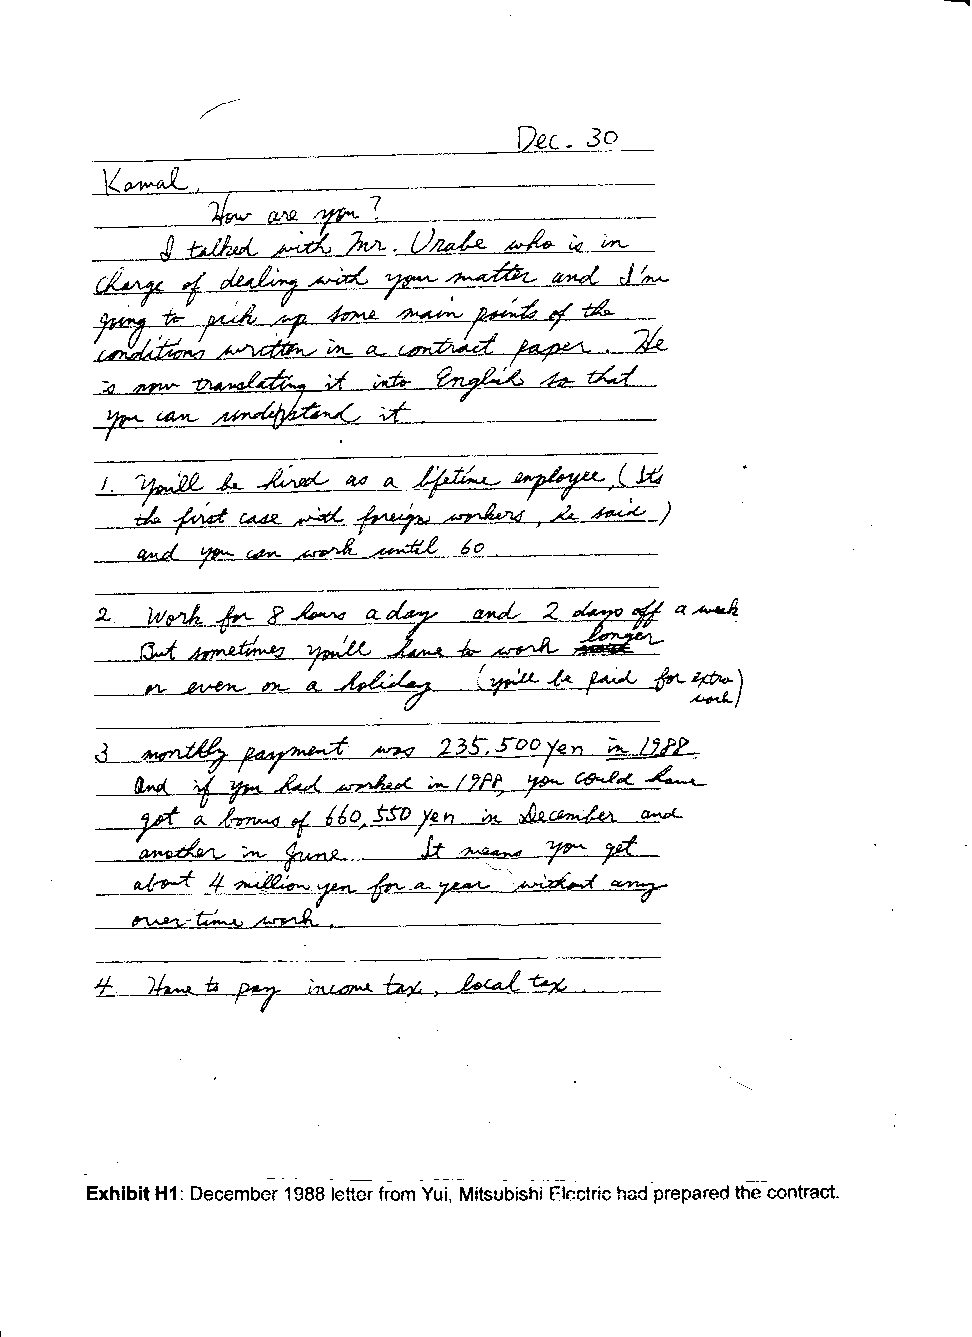 Dec. 30
Kamal,
How are you?
I talked with Mr. Urabe who is in
charge of dealing with your matter and I'm
going to pick up some main points of the
conditions written in a contract paper. He
is now translating it into English so that
you can understand it
1. You'll be hired as a lifetime employee, (It's
the first case with foreign workers, he said)
and you can work until 60
2. Work for 8 hours a day and 2 days off a week
But sometimes you'll have to work longer
or even on a holiday (you'll be paid for extra
work)
3 monthly payment was 235,500 yen in 1988
And if you had worked in 1988, you could have
got a bonus of 660,550 yen in December and
another in June. It means you get
about 4 million yen for a year without any
over-time work.
4. Have to pay income tax, local tax.
Exhibit H1: December 1988 letter from Yui, Mitsubishi Electric had prepared the contract.